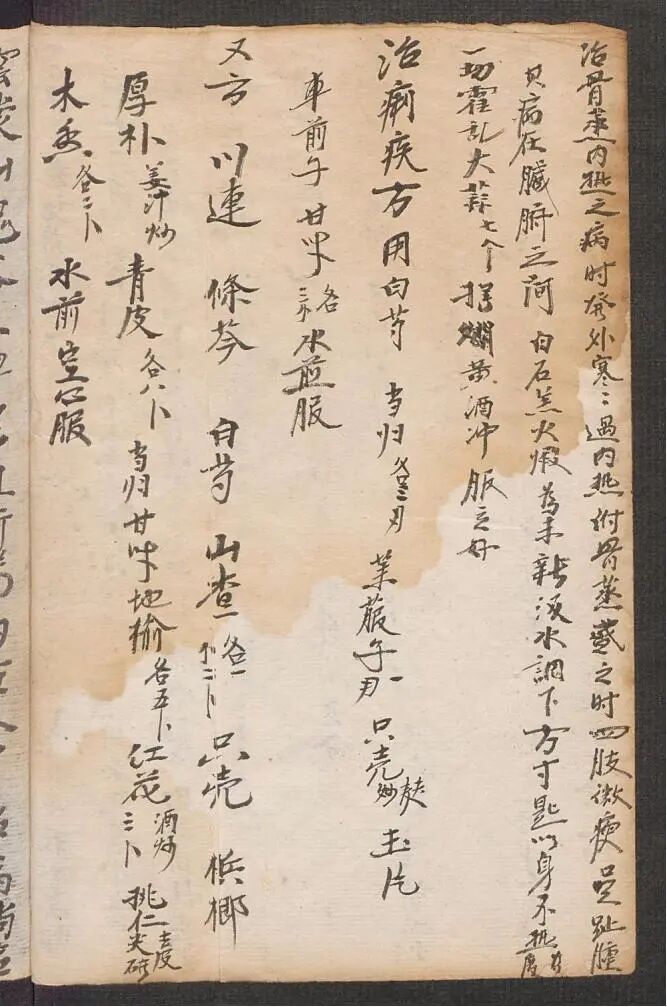 治骨蒸内热之病时發外寒〻過内热附骨蒸盛之时四肢微瘦足趺腫
其病在臟腑之间 白石羔火煅為末新汲水調下方寸匙以身不热為度
一切霍乱大蒜七个 搗爛黄酒冲服立好
治痢疾方用白芍 当归各三刃 莱菔子一刃 只壳麸炒 玉片
車前子 甘草各三分 水煎服
又方 川連 條芩 白芍 山查各一分二卜 只壳 梹榔
厚朴姜汁炒 青皮各八卜 当归 甘草 地榆各五卜 红花酒炒三卜 桃仁去皮尖研
木香各二卜 水煎空心服